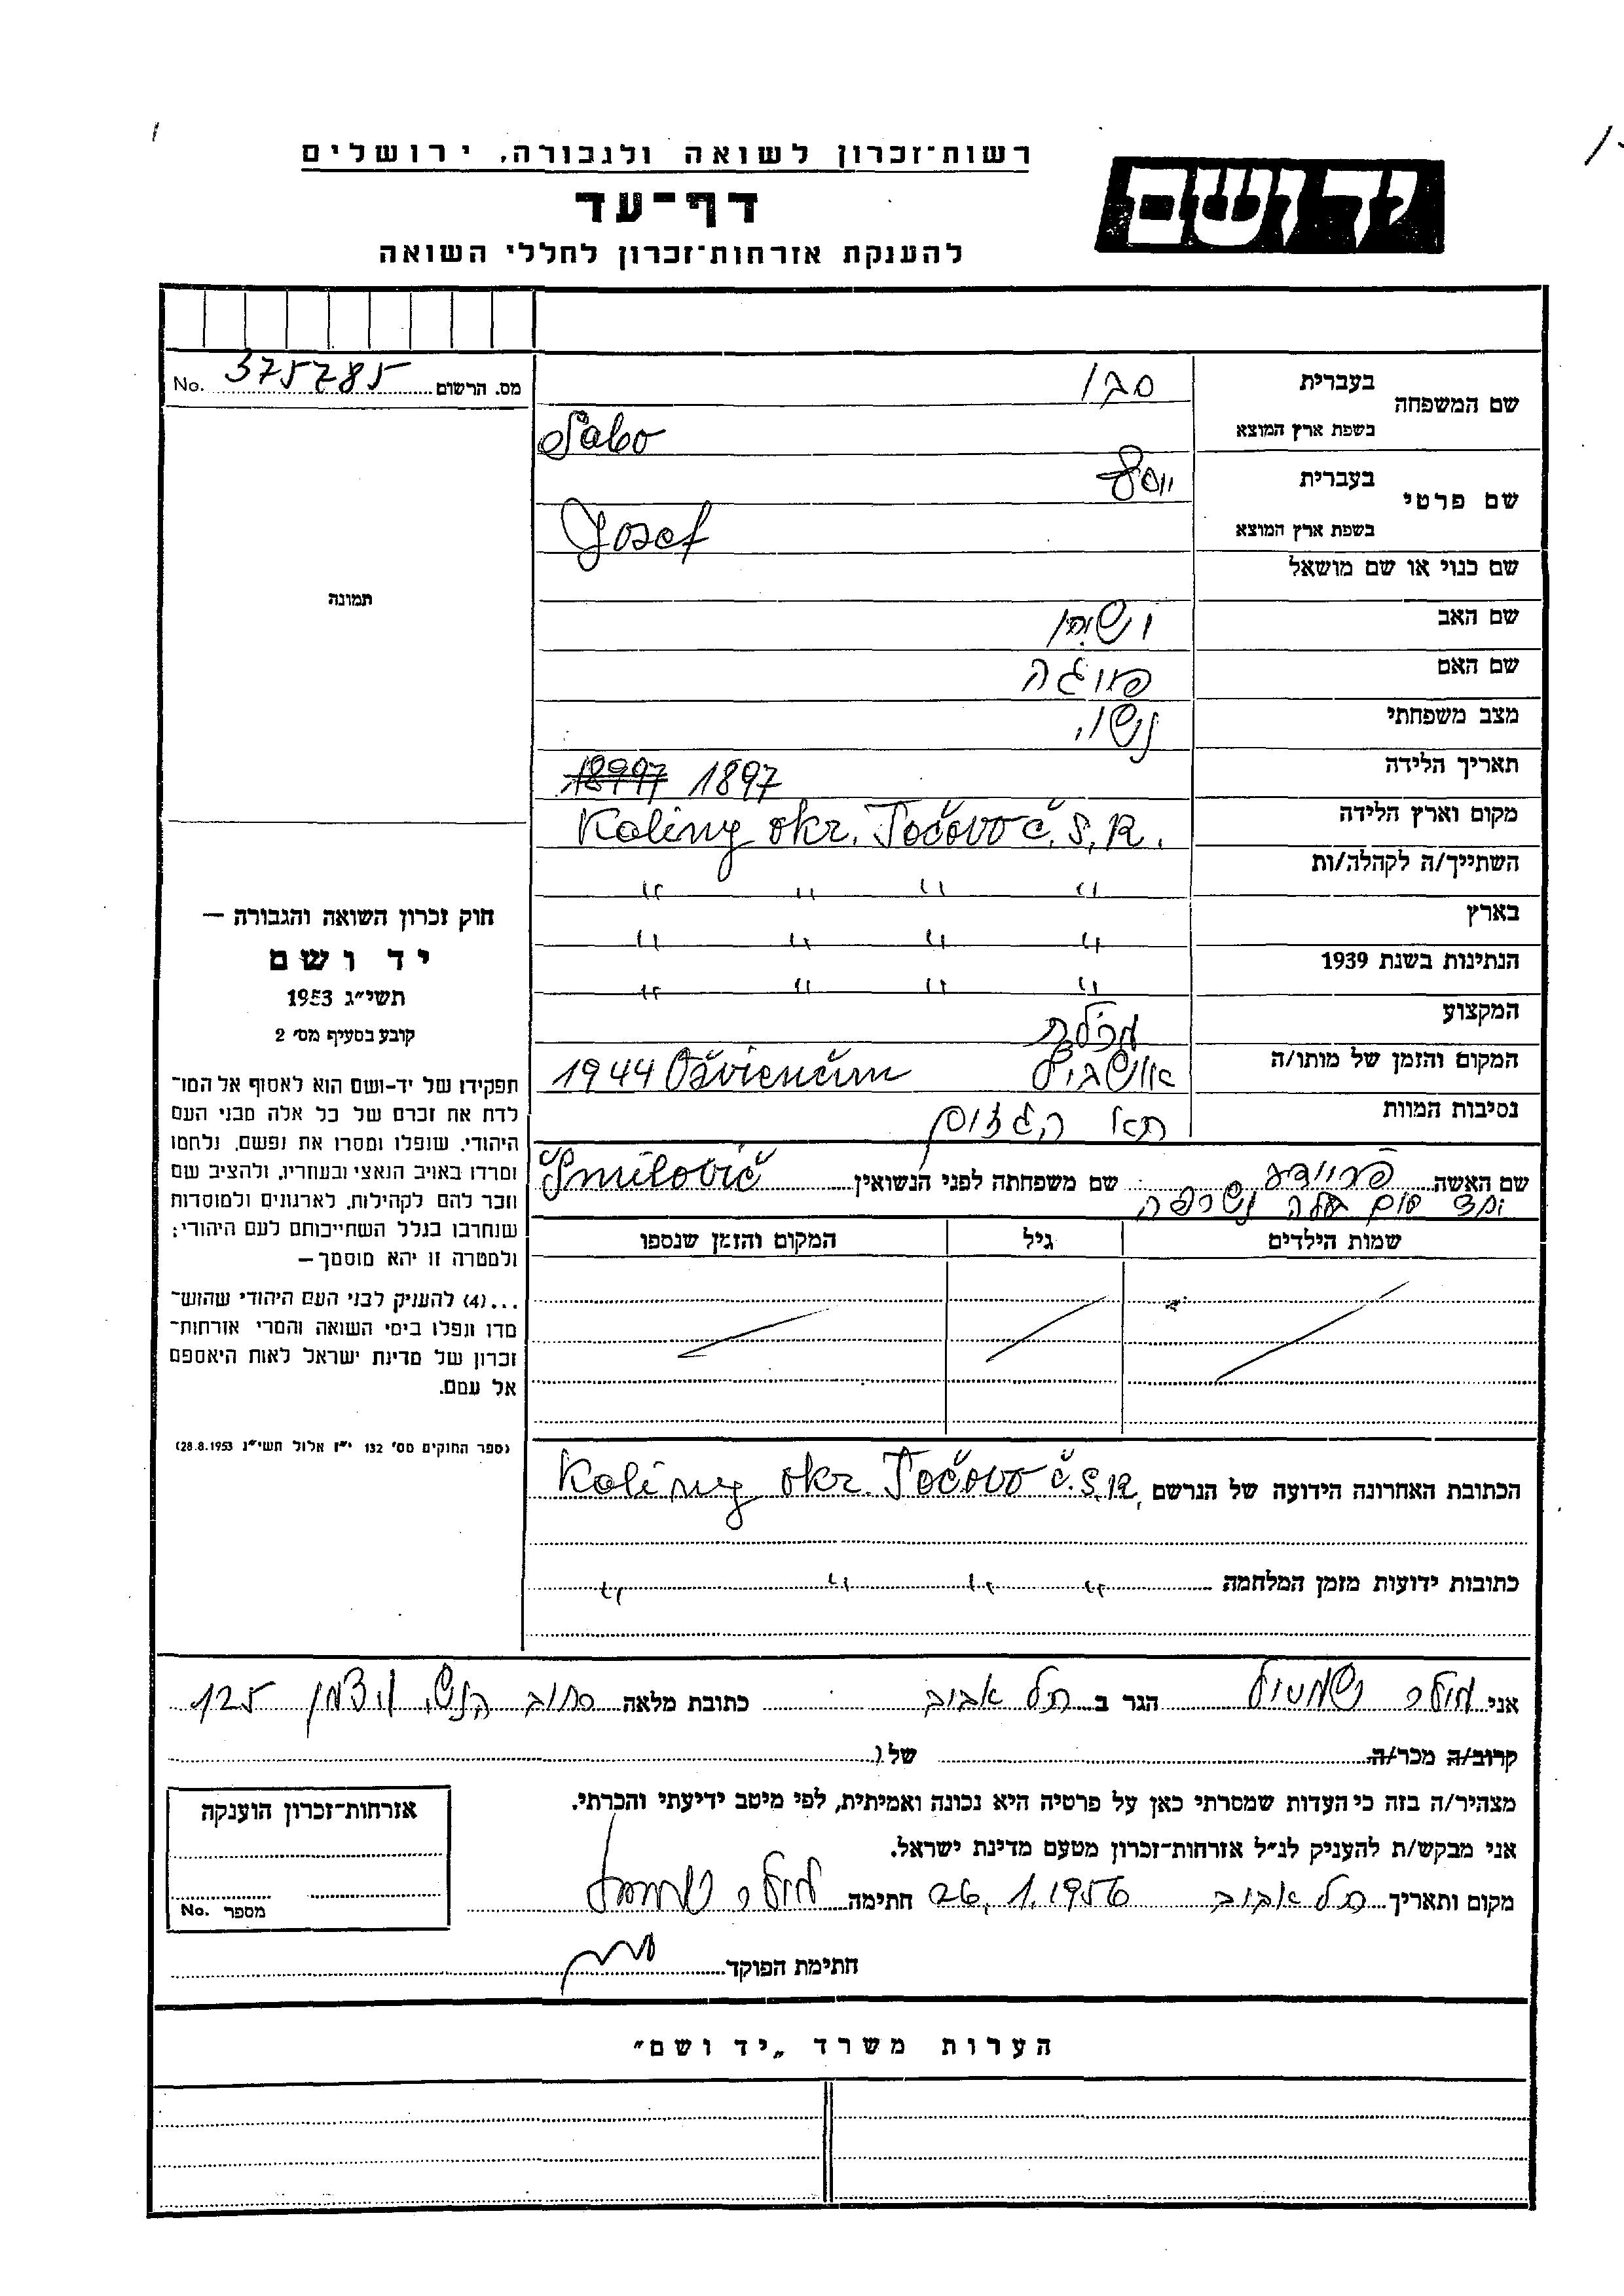 רשות-זכרון לשואה ולגבורה, ירושלים
יד ושם
דף-עד
להענקת אזרחות-זכרון לחללי השואה
מס. הרשום 375785 No.
שם המשפחה
בעברית
סבו
בשפת ארץ המוצא
Sabo
שם פרטי
בעברית
יוסף
בשפת ארץ המוצא
Jozef
שם כנוי או שם מושאל
שם האב
שם האם
מצב משפחתי נשוי
תאריך הלידה 1897
מקום וארץ הלידה Koliny okr. Točovo č.S.R.
השתייך/ה לקהלה/ות " " " "
בארץ " " " "
הנתינות בשנת 1939 " " " "
המקצוע
המקום והזמן של מותו/ה אושביץ 1944 Osvienčim
נסיבות המוות תא הגזים
שם האשה פריידע שם משפחתה לפני הנשואין Šmilovič
שמות הילדים גיל המקום והזמן שנספו
הכתובת האחרונה הידועה של הנרשם Koliny okr. Točovo č.S.R.
כתובות ידועות מזמן המלחמה " " " "
תמונה
חוק זכרון השואה והגבורה —
יד ושם
תשי"ג 1953
קובע בסעיף מס' 2
תפקידו של יד-ושם הוא לאסוף אל המו־
לדת את זכרם של כל אלה מבני העם
היהודי, שנפלו ומסרו את נפשם, נלחמו
ומרדו באויב הנאצי ובעוזריו, ולהציב שם
וזכר להם לקהילות, לארגונים ולמוסדות
שנחרבו בגלל השתייכותם לעם היהודי;
ולמטרה זו יהא מוסמך—
...(4) להעניק לבני העם היהודי שהוש־
מדו ונפלו בימי השואה והמרי אזרחות־
זכרון של מדינת ישראל לאות היאספם
אל עמם.
(ספר החוקים מס' 132 י"ז אלול תשי"ג 28.8.1953)
אני מולר שמואל הגר ב תל אביב כתובת מלאה רחוב הנשי ויצמן 125
קרוב/ה מכר/ה של
מצהיר/ה בזה כי העדות שמסרתי כאן על פרטיה היא נכונה ואמיתית, לפי מיטב ידיעתי והכרתי.
אני מבקש/ת להעניק לנ"ל אזרחות-זכרון מטעם מדינת ישראל.
מקום ותאריך תל אביב 26.1.1956 חתימה מולר שמואל
אזרחות-זכרון הוענקה
מספר No.
חתימת הפוקד
הערות משרד „יד ושם"